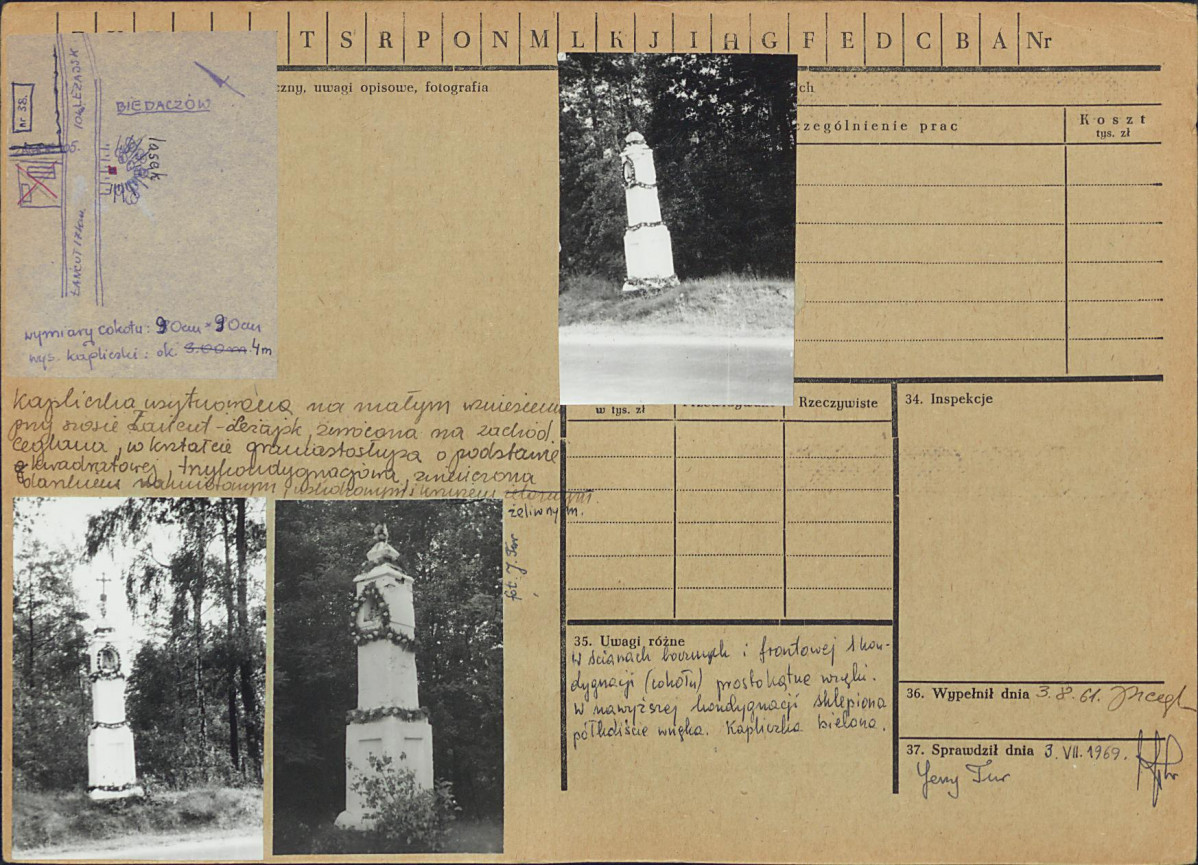 T S R P O N M L K J I H G F E D C B A Nr
czny, uwagi opisowe, fotografia
nr 38.
LEŻAJSK
BIEDACZÓW
lasek
ŁAŃCUT 17km
wymiary cokołu: 90cm × 90cm
wys. kapliczki: ok. 3.00m 4m
Kapliczka usytuowana na małym wzniesieniu
przy szosie Łańcut-Leżajsk, zwrócona na zachód
ceglana, w kształcie graniastosłupa o podstawie
kwadratowej, trzykondygnacjowa, zwieńczona
daszkiem namiotowym i krzyżem
żeliwnym.
fot. J. Tur
ch
zególnienie prac
Koszt
tys. zł
w tys. zł
Rzeczywiste
34. Inspekcje
35. Uwagi różne
W ścianach bocznych i frontowej I kon-
dygnacji (cokołu) prostokątne wnęki.
W nawyższej kondygnacji sklepiona
półkoliście wnęka. Kapliczka bielona.
36. Wypełnił dnia 3.8.61.
37. Sprawdził dnia 3.VII.1969.
Jerzy Tur